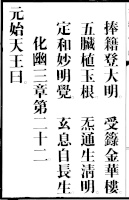 捧籍登大明　受籙金華樓
五臟植玉根　炁通生清明
定和妙明覺　玄息自長生
化幽三章第二十二
元始天王曰